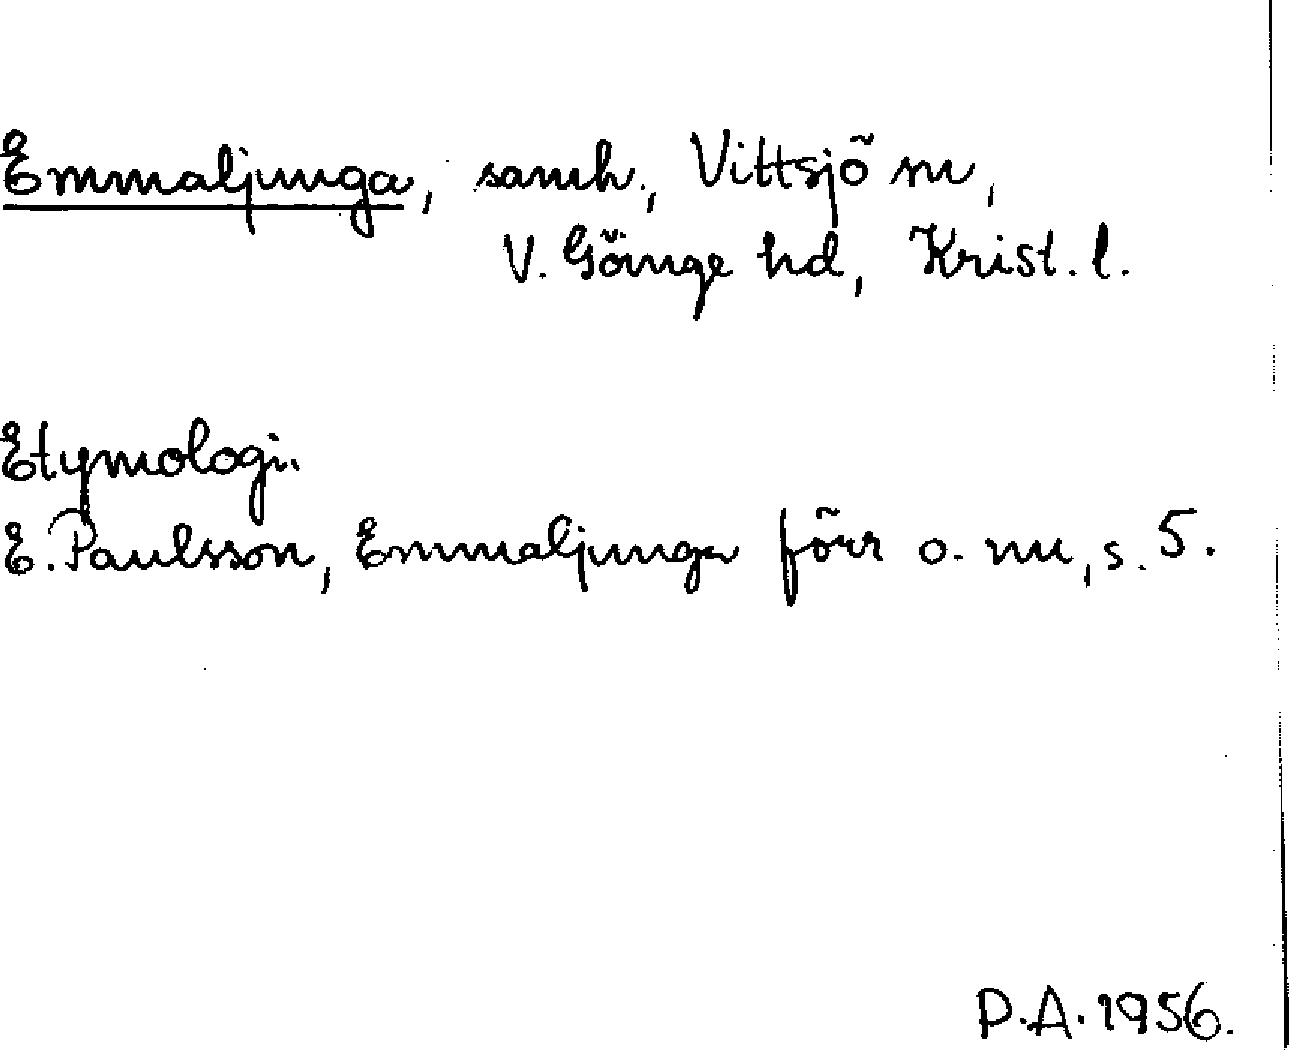 Emmaljunga, samh., Vittsjö sn,
V. Göinge hd, Krist. l.
Etymologi.
E. Paulsson, Emmaljunga förr o. nu, s. 5.
P.A. 1956.